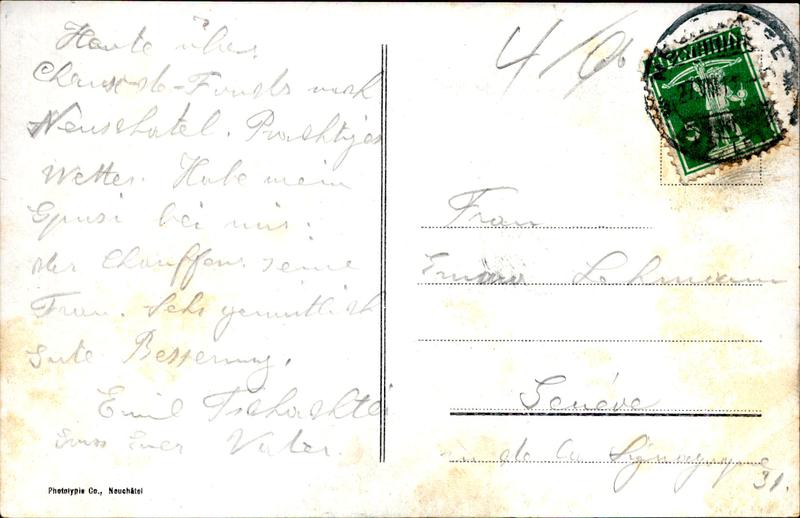 Heute über
Chaux-de-Fonds nach
Neuschatel. Prachtiges
Wetter. Habe mein
bei mir.
der Chauffeur seine
Frau. Sehr gemütlich
Gute Besserung.
Emil Tschachtli
Gruss Euer Vater.
4/
HELVETIA
5
Frau
Emma Lehmann
Genève
rue de la Synagogue
31.
Phototypie Co., Neuchâtel